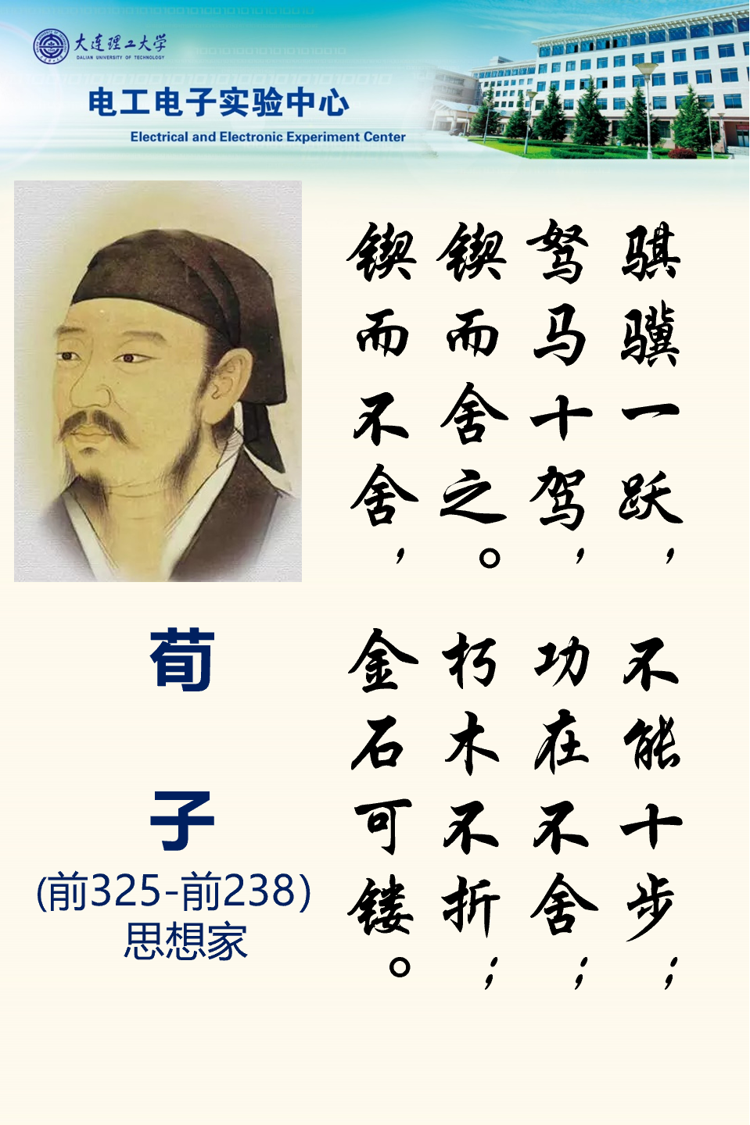 大连理工大学
DALIAN UNIVERSITY OF TECHNOLOGY
电工电子实验中心
Electrical and Electronic Experiment Center
骐骥一跃，不能十步；
驽马十驾，功在不舍；
锲而舍之。朽木不折；
锲而不舍，金石可镂。
荀子
(前325-前238）
思想家